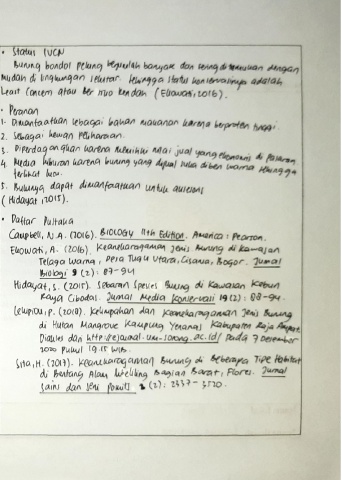 • Status IUCN
Burung bondol peking berjumlah banyak dan sering ditemukan dengan
mudah di lingkungan sekitar. sehingga status konservasinya adalah
Least Concern atau ber risiko rendah (Ekowati, 2016).
• Peranan
1. Dimanfaatkan sebagai bahan makanan karena berprotein tinggi
2. Sebagai hewan Peliharaan.
3. Diperdagangkan karena memiliki nilai jual yang ekonomis di pasaran
4. Media hiburan karena burung yang dijual suka diberi warna sehingga
terlihat lucu.
5. Bulunya dapat dimanfaatkan untuk
(Hidayat, 2015).
• Daftar Pustaka
Campbell, N.A. (2016). BIOLOGY 11th Edition. America: Pearson.
Ekowati, A. (2016). Keanekaragaman Jenis Burung di Kawasan
Telaga Warna, Desa Tugu Utara, Cisarua, Bogor. Jurnal
Biologi 9 (2): 87-94
Hidayat, S. (2015). Sebaran Spesies Burung di Kawasan Kebun
Raya Cibodas. Jurnal Media Konservasi 19 (2): 88-94.
P. (2018). Kelimpahan dan Keanekaragaman Jenis Burung
di Hutan Mangrove Kampung Yenanas Kabupaten Raja Ampat.
Diakses dari http://ejournal.um-sorong.ac.id/ pada 7 Desember
2020 Pukul 19.15 WIB.
Sita, H. (2017). Keanekaragaman Burung di Beberapa Tipe Habitat
di Bentang Alam Mbeliling Bagian Barat, Flores. Jurnal
Sains dan Seni Pomits (2): 2337-3520.